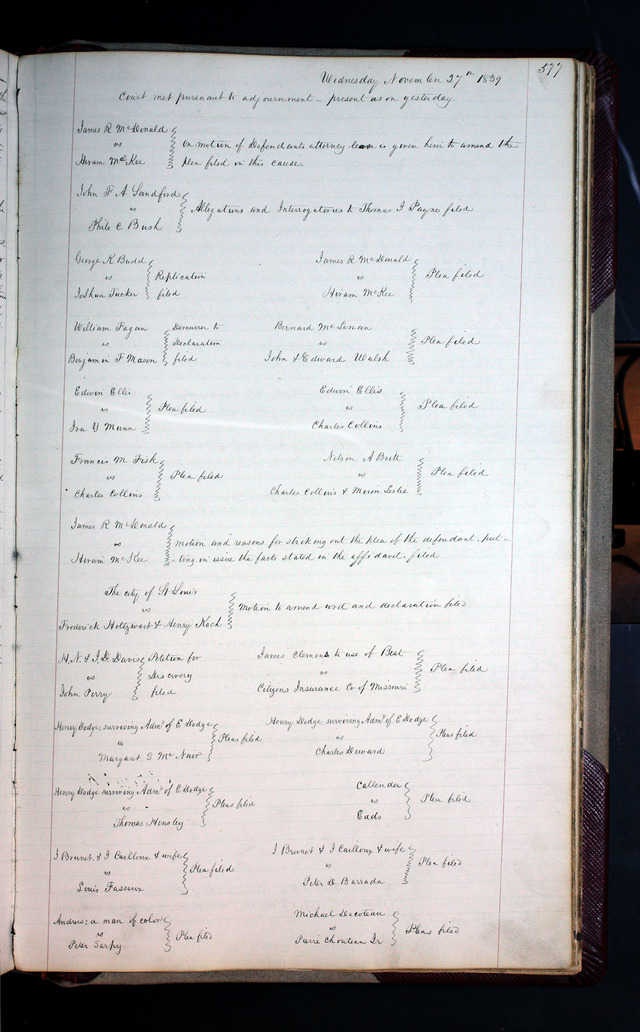 577
Wednesday November 27th 1839
Court met pursuant to adjournment - present as on yesterday.
James R McDonald
vs
Hiram McKee
On motion of Defendants attorney leave is given him to amend the
plea filed in this cause.
John F A Sandford
vs
Philo C Bush
Allegations and Interrogatories to Thomas J Payne filed
George K Budd
vs
Joshua Tucker
Replication
filed
James R McDonald
vs
Hiram McKee
Plea filed
William Fagan
vs
Benjamin F Mason
Demurrer to
Declaration
filed
Bernard
vs
John & Edward Walsh
Plea filed
Edwin Ellis
vs
Ira Y Munn
Plea filed
Edwin Ellis
vs
Charles Collins
Plea filed
Francis M Fish
vs
Charles Collins
Plea filed
Nelson A Brett
vs
Charles Collins & Miron Leslie
Plea filed
James R McDonald
vs
Hiram McKee
Motion and reasons for striking out the plea of the defendant, put-
-ting in issue the facts stated in the affidavit, filed
The city of St Louis
vs
Frederick Holtzwart & Henry Koch
Motion to amend writ and declaration filed
H. N. & J. D. Davis
vs
John Perry
Petition for
Discovery
filed
James Clemens to use of Best
vs
Citizens Insurance Co of Missouri
Plea filed
Henry Dodge, surviving Admr of E Dodge
vs
Margaret S McNair
Pleas filed
Henry Dodge surviving Admr of E Dodge
vs
Charles Deward
Pleas filed
Henry Dodge surviving Admr of E Dodge
vs
Thomas Hensley
Pleas filed
Callender
vs
Eads
Plea filed
J Brunet & J Cailloux & wife
vs
Louis Fasseux
Plea filed
J Brunet & J Cailloux & wife
vs
Peter D Barrada
Plea filed
Andrew; a man of color
vs
Peter Sarpy
Plea filed
Michael Decoteau
vs
Pierre Chouteau Jr
Pleas filed